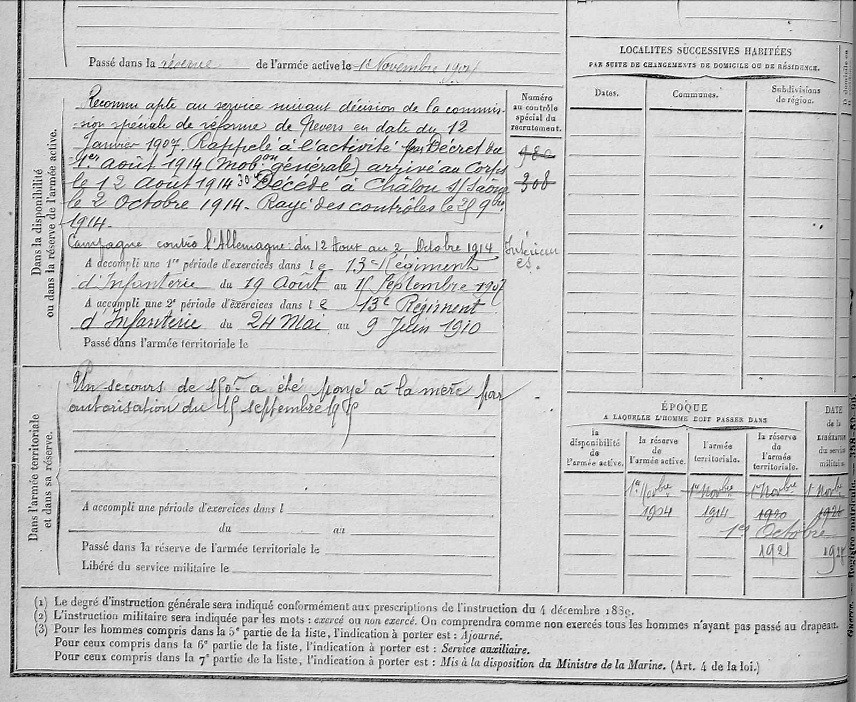 Passé dans la réserve de l'armée active le 1er Novembre 1904
Dans la disponibilité
ou dans la réserve de l'armée active.
Reconnu apte au service suivant décision de la commis-
sion spéciale de réforme de Nevers en date du 12
Janvier 1907. Rappelé à l'activité par Décret du
1er août 1914 (Mobon générale) arrivé au Corps
le 12 Août 1914. Décédé à Châlon s/ Saône
le 2 Octobre 1914. Rayé des contrôles le 25 9bre
1914.
Campagne contre l'Allemagne: du 12 Aout au 2 Octobre 1914
Intérieur
A accompli une 1re période d'exercices dans le 13e Régiment
d'Infanterie du 19 Août au 15 Septembre 1907
A accompli une 2e période d'exercices dans le 13e Régiment
d'Infanterie du 24 Mai au 9 Juin 1910
Passé dans l'armée territoriale le
Numéro
au contrôle
spécial du
recrutement.
980
308
Dans l'armée territoriale
et dans sa réserve.
Un secours de 150f a été payé à la mère par
autorisation du 15 septembre
A accompli une période d'exercices dans l
du au
Passé dans la réserve de l'armée territoriale le
Libéré du service militaire le
LOCALITÉS SUCCESSIVES HABITÉES
PAR SUITE DE CHANGEMENTS DE DOMICILE OU DE RÉSIDENCE.
Dates. Communes. Subdivisions
de région.
ÉPOQUE
A LAQUELLE L'HOMME DOIT PASSER DANS
la
disponibilité
de
l'armée active.
la réserve
de
l'armée active.
l'armée
territoriale.
la réserve
de
l'armée
territoriale.
DATE
de la
LIBÉRATION
du service
militaire.
1er Novbre 1er Novbre 1er Novbre 1er Novbre
1904 1914 1920
1er Octobre
1921
(1) Le degré d'instruction générale sera indiqué conformément aux prescriptions de l'instruction du 4 décembre 1889.
(2) L'instruction militaire sera indiquée par les mots : exercé ou non exercé. On comprendra comme non exercés tous les hommes n'ayant pas passé au drapeau.
(3) Pour les hommes compris dans la 5e partie de la liste, l'indication à porter est : Ajourné.
Pour ceux compris dans la 6e partie de la liste, l'indication à porter est : Service auxiliaire.
Pour ceux compris dans la 7e partie de la liste, l'indication à porter est : Mis à la disposition du Ministre de la Marine. (Art. 4 de la loi.)